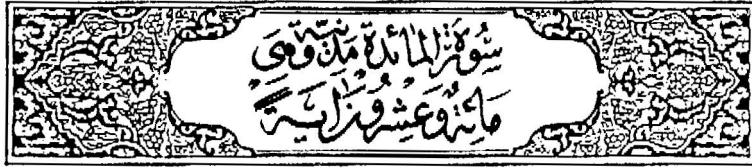 سُورَةُ المَائدة مَدَنيَّة وَهيَ
مَائَةٌ وَعِشْرُونَ آيَةً